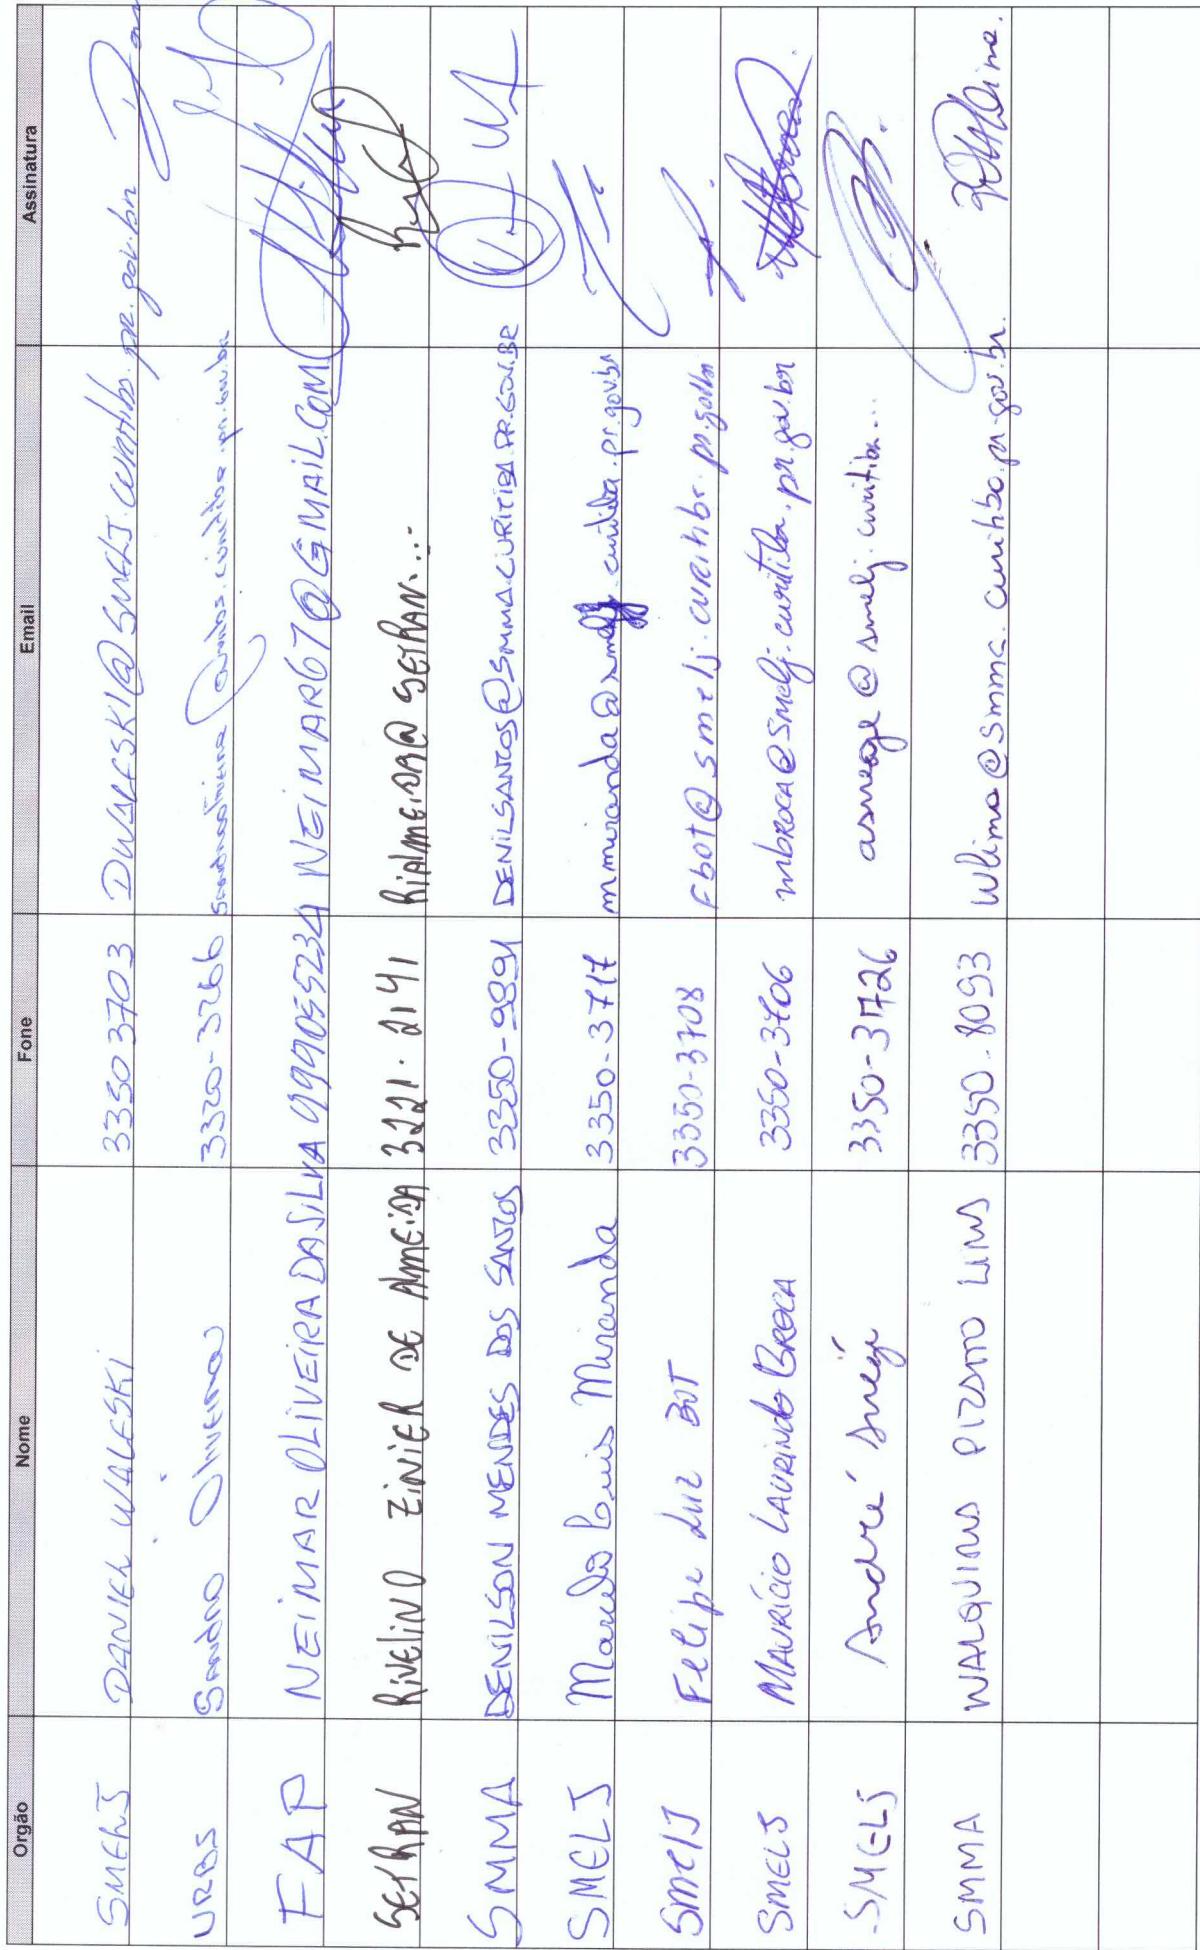 Orgão Nome Fone Email Assinatura
SMELJ DANIEL WALESKI 33503703 DWALESKI@SMELJ.curitiba.pr.gov.br
URBS Sandro Oliveira 3320-3266
FAP NEIMAR OLIVEIRA DA SILVA 999055234 NEIMAR67@GMAIL.COM
SETRAN RIVELINO ZINIER DE ALMEIDA 3221.2141 RIALMEIDA@SETRAN...
SMMA DENILSON MENDES DOS SANTOS 3350-9891 DENILSANTOS@SMMA.CURITIBA.PR.GOV.BR
SMELJ Marcelo Luis Miranda 3350-3717 mmiranda@smelj.curitiba.pr.gov.br
SMELJ Felipe Luiz BOT 3350-3708 Fbot@smelj.curitiba.pr.gov.br
SMELJ MAURÍCIO LAURINDO BROCA 3350-3706 mbroca@smelj.curitiba.pr.gov.br
SMELJ André 3350-3726 @smelj.curitiba...
SMMA 3350-8093 wlima@smma.curitiba.pr.gov.br.